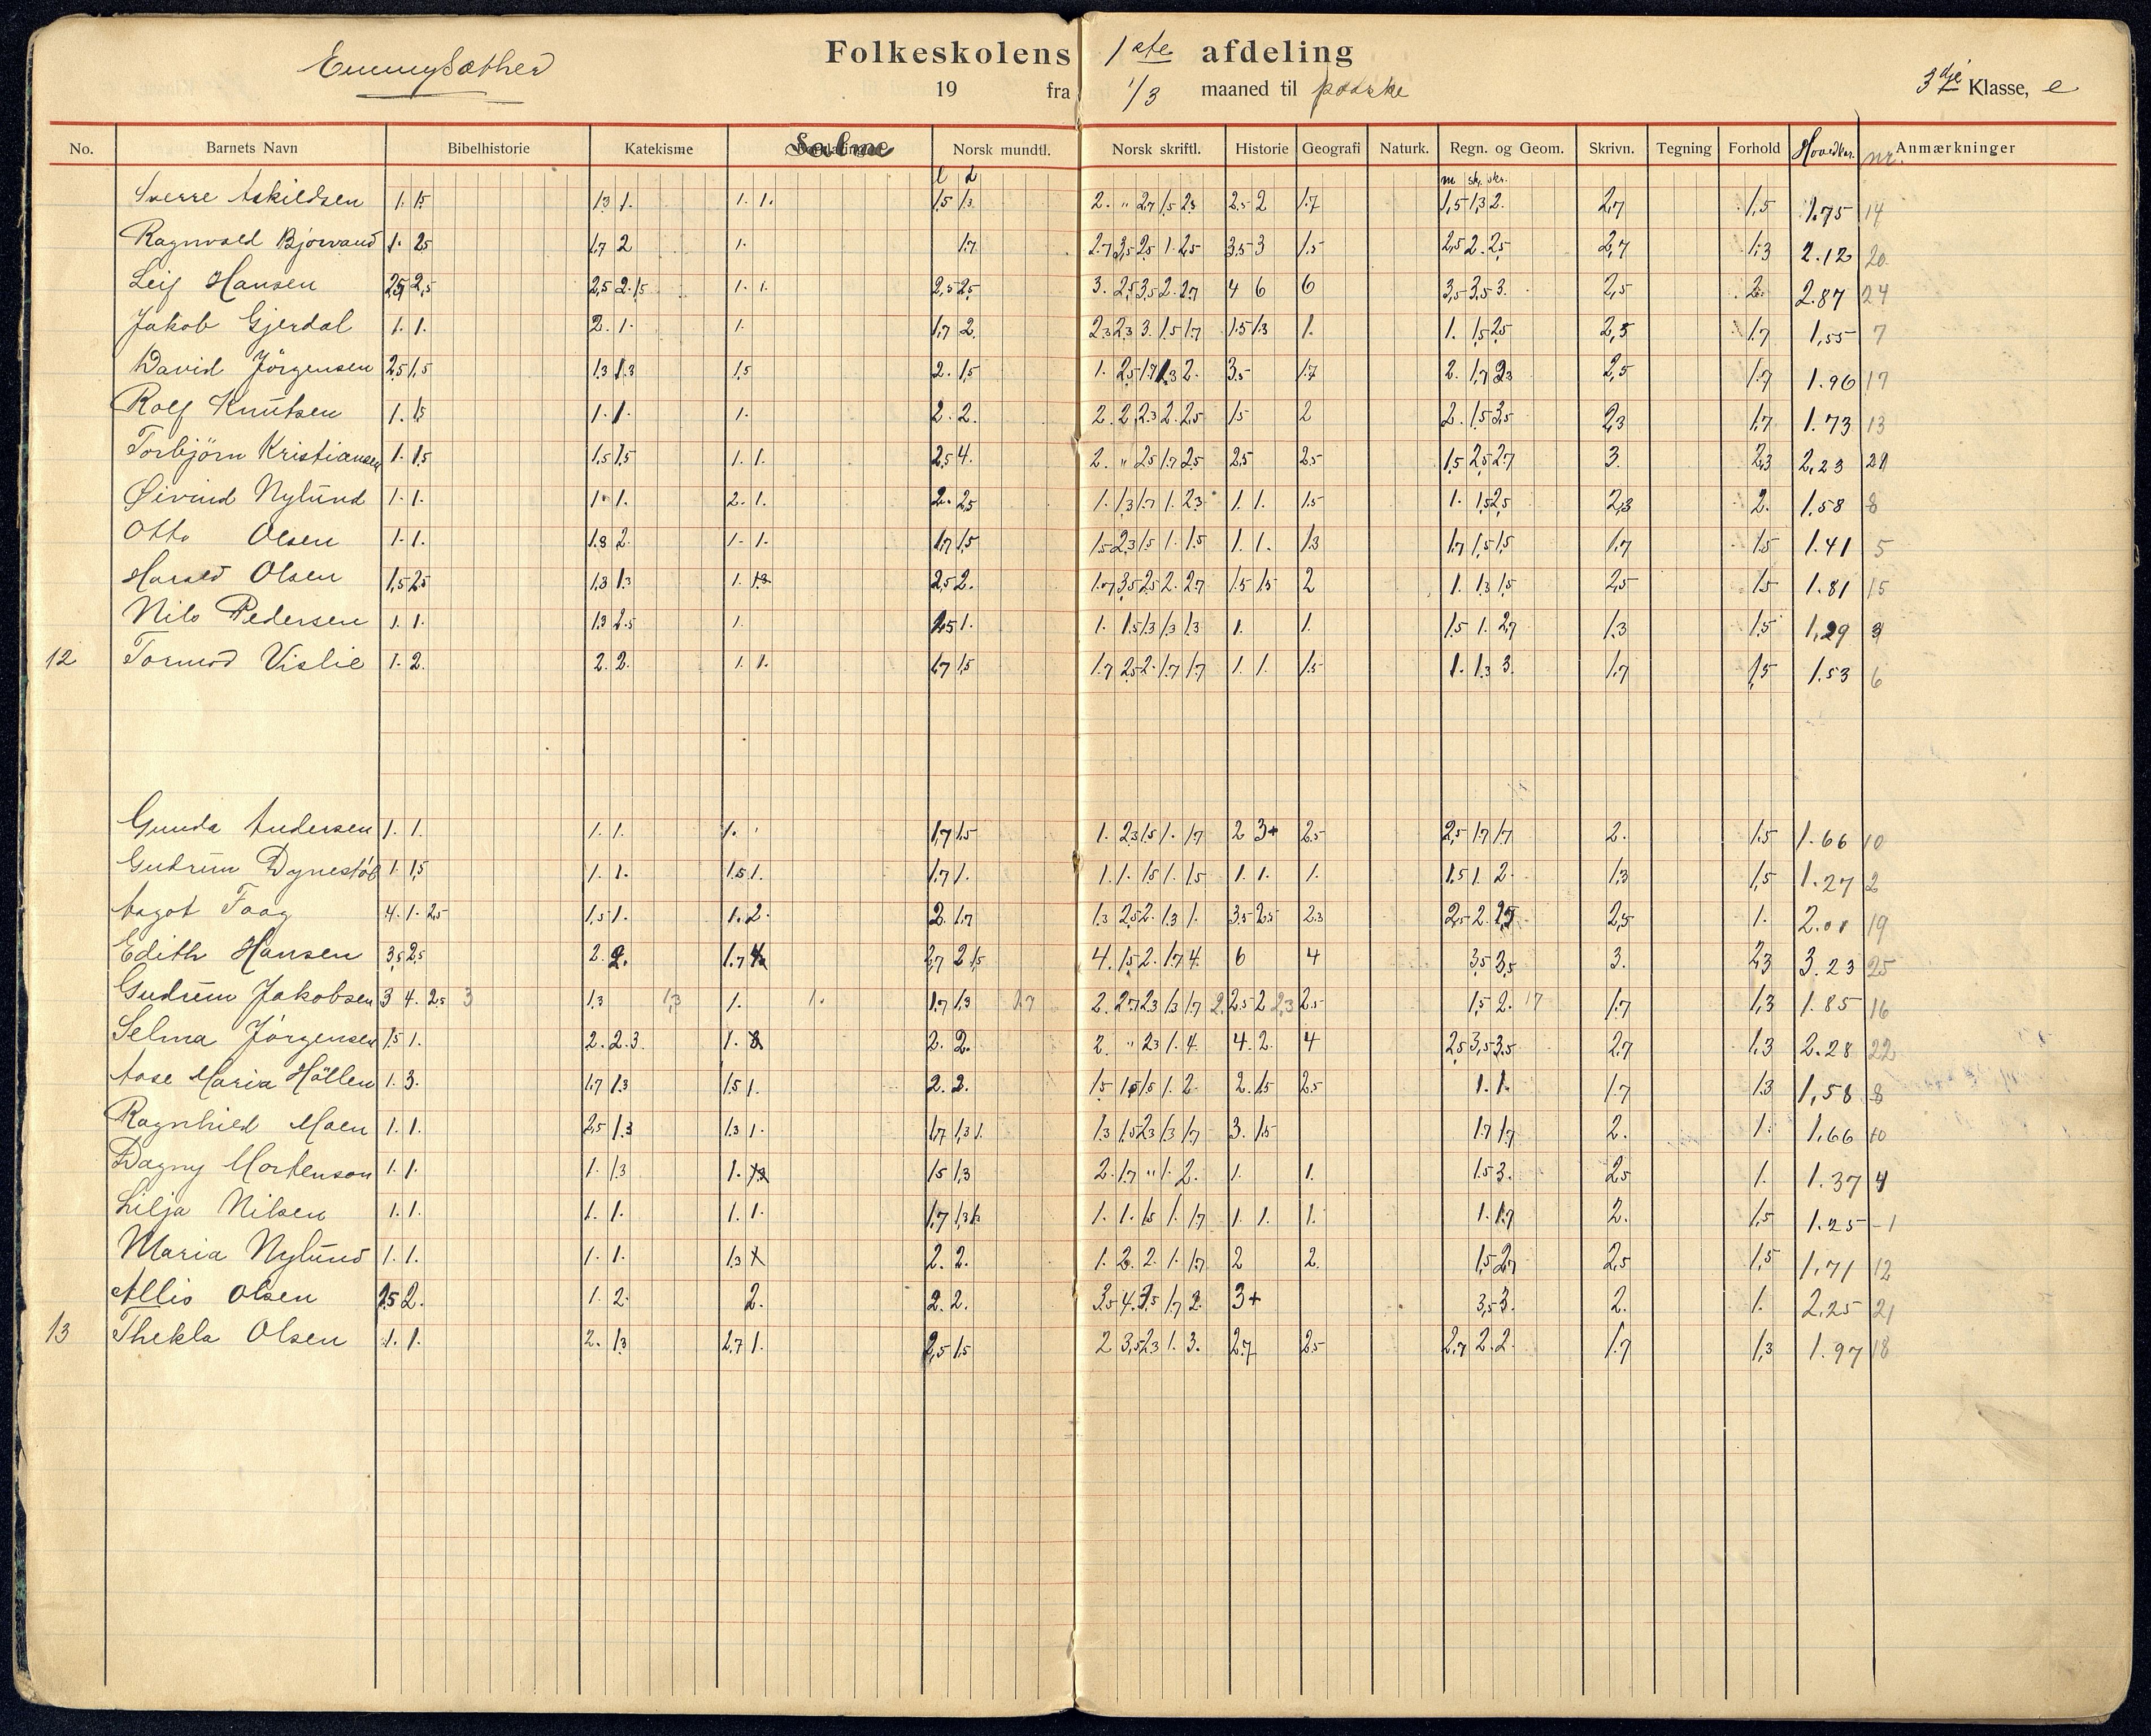 Emmy Sæther Folkeskolens 1ste afdeling
19 fra 1/3 maaned til paaske 3dje Klasse, e
No. Barnets Navn Bibelhistorie Katekisme Salme Norsk mundtl. Norsk skriftl. Historie Geografi Naturk. Regn. og Geom. Skrivn. Tegning Forhold Hovedkar. nr. Anmærkninger
l d m sk. skr.
Sverre Askildsen 1. 1,5 1,3 1. 1. 1. 1,5 1,3 2. " 2,7 1,5 2,3 2,5 2 1,7 1,5 1,3 2. 2,7 1,5 1.75 14
Ragnvald Bjorvand 1. 2,5 1,7 2 1. 1,7 2,7 3,5 2,5 1. 2,5 3,5 3 1,5 2,5 2. 2,5 2,7 1,3 2.12 20
Leif Hansen 2,5 2,5 2,5 2. 1,5 1. 1. 2,5 2,5 3. 2,5 3,5 2. 2,7 4 6 6 3,5 3,5 3. 2,5 2. 2.87 24
Jakob Gjerdal 1. 1. 2. 1. 1. 1,7 2. 2,3 2,3 3. 1,5 1,7 1,5 1,3 1. 1. 1,5 2,5 2,5 1,7 1,55 7
David Jörgensen 2,5 1,5 1,3 1,3 1,5 2. 1,5 1. 2,5 1,7 1,3 2. 3,5 1,7 2. 1,7 2,3 2,5 1,7 1.96 17
Rolf Knutsen 1. 1,5 1. 1. 1. 2. 2. 2. 2. 2,3 2. 2,5 1,5 2 2. 1,5 3,5 2,3 1,7 1.73 13
Torbjörn Kristiansen 1. 1,5 1,5 1,5 1. 1. 2,5 4. 2. " 2,5 1,7 2,5 2,5 2,5 1,5 2,5 2,7 3. 2,3 2,23 21
Øivind Nylund 1. 1. 1. 1. 2. 1. 2. 2,5 1. 1,3 1,7 1. 2,3 1. 1. 1,5 1. 1,5 2,5 2,3 2. 1,58 8
Otto Olsen 1. 1. 1,3 2. 1. 1. 1,7 1,5 1,5 2,3 1,5 1. 1,5 1. 1. 1,3 1,7 1,5 1,5 1,7 1,5 1.41 5
Harald Olsen 1,5 2,5 1,3 1,3 1. 1,3 2,5 2. 1,7 3,5 2,5 2. 2,7 1,5 1,5 2 1. 1,3 1,5 2,5 1,5 1.81 15
Nils Pedersen 1. 1. 1,3 2,5 1. 1,5 1. 1. 1,5 1,3 1,3 1,3 1. 1. 1,5 1. 2,7 1,3 1,5 1,29 3
12 Tormod Vislie 1. 2. 2. 2. 1. 1. 1,7 1,5 1,7 2,5 2. 1,7 1,7 1. 1. 1,5 1. 1,3 3. 1,7 1,5 1.53 6
Gunda Andersen 1. 1. 1. 1. 1. 1,7 1,5 1. 2,3 1,5 1. 1,7 2 3+ 2,5 2,5 1,7 1,7 2. 1,5 1.66 10
Gudrun Dynestöl 1. 1,5 1. 1. 1,5 1. 1,7 1. 1. 1. 1,5 1. 1,5 1. 1. 1. 1,5 1. 2. 1,3 1,5 1.27 2
Aagot Faag 4. 1. 2,5 1,5 1. 1. 2. 2. 1,7 1,3 2,5 2. 1,3 1. 3,5 2,5 2,3 2,5 2. 2,5 2,5 1. 2.01 19
Edith Hansen 3,5 2,5 2. 2. 1.7 4 2,7 2 1,5 4. 1,5 2. 1,7 4. 6 4 3,5 3,5 3. 2,3 3.23 25
Gudrun Jakobsen 3 4. 2,5 3 1,3 1,3 1. 1. 1,7 1,3 1,7 2. 2,7 2,3 1,3 1,7 2. 2,5 2 2,3 2,5 1,5 2. 1,7 1,7 1,3 1.85 16
Selma Jörgensen 1,5 1. 2. 2.3 1. 3 2. 2. 2. " 2,3 1. 4. 4. 2. 4 2,5 3,5 3,5 2,7 1,3 2.28 22
Aase Maria Höllen 1. 3. 1,7 1,3 1,5 1. 2. 2. 1,5 1,5 1,5 1. 2. 2. 1,5 2,5 1. 1. 1,7 1,3 1,58 8
Ragnhild Moen 1. 1. 2,5 1,3 1,3 1. 1,7 1,3 1. 1,3 1,5 2,3 1,3 1,7 3. 1,5 1,7 1,7 2. 1. 1,66 10
Dagny Mortenson 1. 1. 1. 1,3 1. 1,3 1,5 1,3 2. 1,7 " 1. 2. 1. 1. 1,5 3. 2,5 1. 1.37 4
Lilja Nilsen 1. 1. 1. 1. 1. 1. 1,7 1,3 1,3 1. 1. 1,5 1. 1,7 1. 1. 1. 1. 1,7 2. 1,5 1.25 1
Maria Nylund 1. 1. 1. 1. 1,3 1 2. 2. 1. 3. 2. 1. 1,7 2 2. 1,5 2,7 2,5 1,5 1,71 12
Allis Olsen 2,5 2. 1. 2. 2. 2. 2. 3,5 4. 3,5 1,7 2. 3+ 3,5 3. 2. 1. 2,25 21
13 Thekla Olsen 1. 1. 2. 1,3 2,7 1. 2,5 1,5 2 3,5 2,3 1. 3. 2,7 2,5 2,7 2. 2. 1,7 1,3 1.97 18